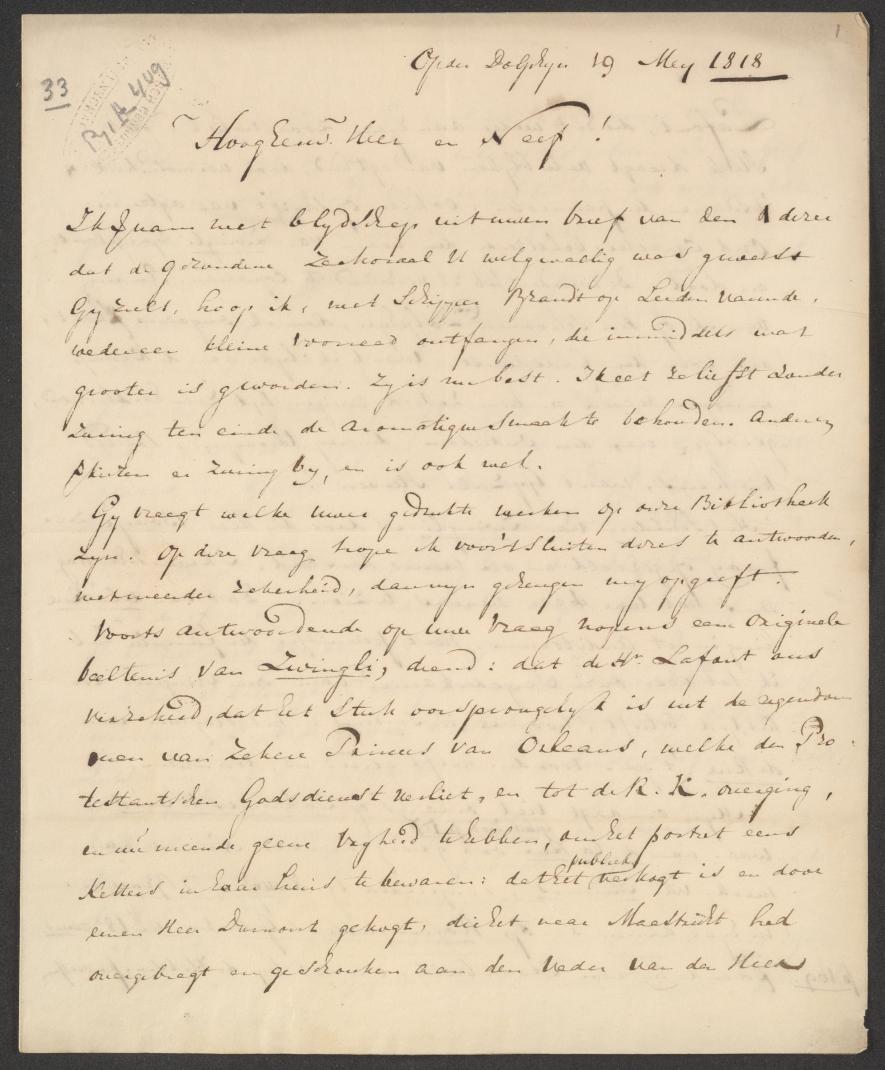 33
1
Op den Dolphyn 19 Mey 1818
HoogEerw. Heer en Neef!
Ik vernam met blydschap uit uwen brief van den 1 dezer
dat de gezondene Zeekoraal U welgevallig was geweest
Gy zult, hoop ik, met Schipper Brandt op Leiden varende,
wedereen kleine voorraad ontfangen, die inmiddels wat
grooter is geworden. Zy is nu best. Ik eet ze liefst zonder
zuring ten einde de aromatique smaek te behouden. Anderen
zuring by, en is ook wel.
Gy vraegt welke uwer gedrukte werken op onze Bibliotheek
zyn. Op deze vraeg hope ik voor't sluiten dezes te antwoorden,
met meerder zekerheid, dan myn geheugen my opgeeft.
Voorts antwoordende op uwe vraeg nopens een originele
beeltenis van Zwingli, diend: dat de Hr. Lafont ons
verzekerd, dat het stuk oorsprongelyk is uit de eigendom
men van zekere Prinses van Orleans, welke den Pro
testantschen Godsdienst verliet, en tot de R. K. overging,
en nu meende geene vryheid te hebben, om het portret eens
Ketters in haer huis te bewaren: dat het publiek verkogt is en door
eenen Heer Dumont gekogt, die het naar Maestricht had
overgebragt en geschonken aan den Vader van den Heer